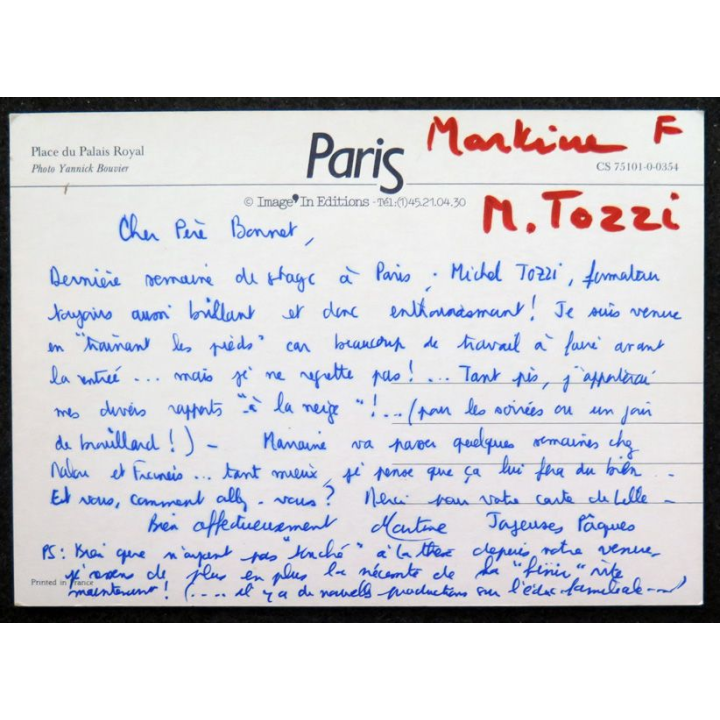 Place du Palais Royal
Photo Yannick Bouvier
Paris
Martine F
CS 75101-0-0354
© Image'In Editions - Tél:(1)45.21.04.30
M. Tozzi
Cher Père Bonnet,
Dernière semaine de stage à Paris ; Michel Tozzi, formateur
toujours aussi brillant et donc enthousiasmant ! Je suis venue
en "traînant les pieds" car beaucoup de travail à faire avant
la rentrée ... mais je ne regrette pas ! ... Tant pis, j'apporterai
mes divers rapports "à la neige" ! ... (pour les soirées ou un jour
de brouillard !) - va passer quelques semaines chez
et Francis ... tant mieux, je pense que ça lui fera du bien ...
Et vous, comment allez-vous ? Merci pour votre carte de Lille -
Bien affectueusement Martine Joyeuses Pâques
PS : Bien que n'ayant pas "touché" à la thèse depuis votre venue,
je ressens de plus en plus la nécessité de la "finir" vite
Printed in France
maintenant ! (.... il y a de nouvelles productions sur l'éduc. familiale ...)